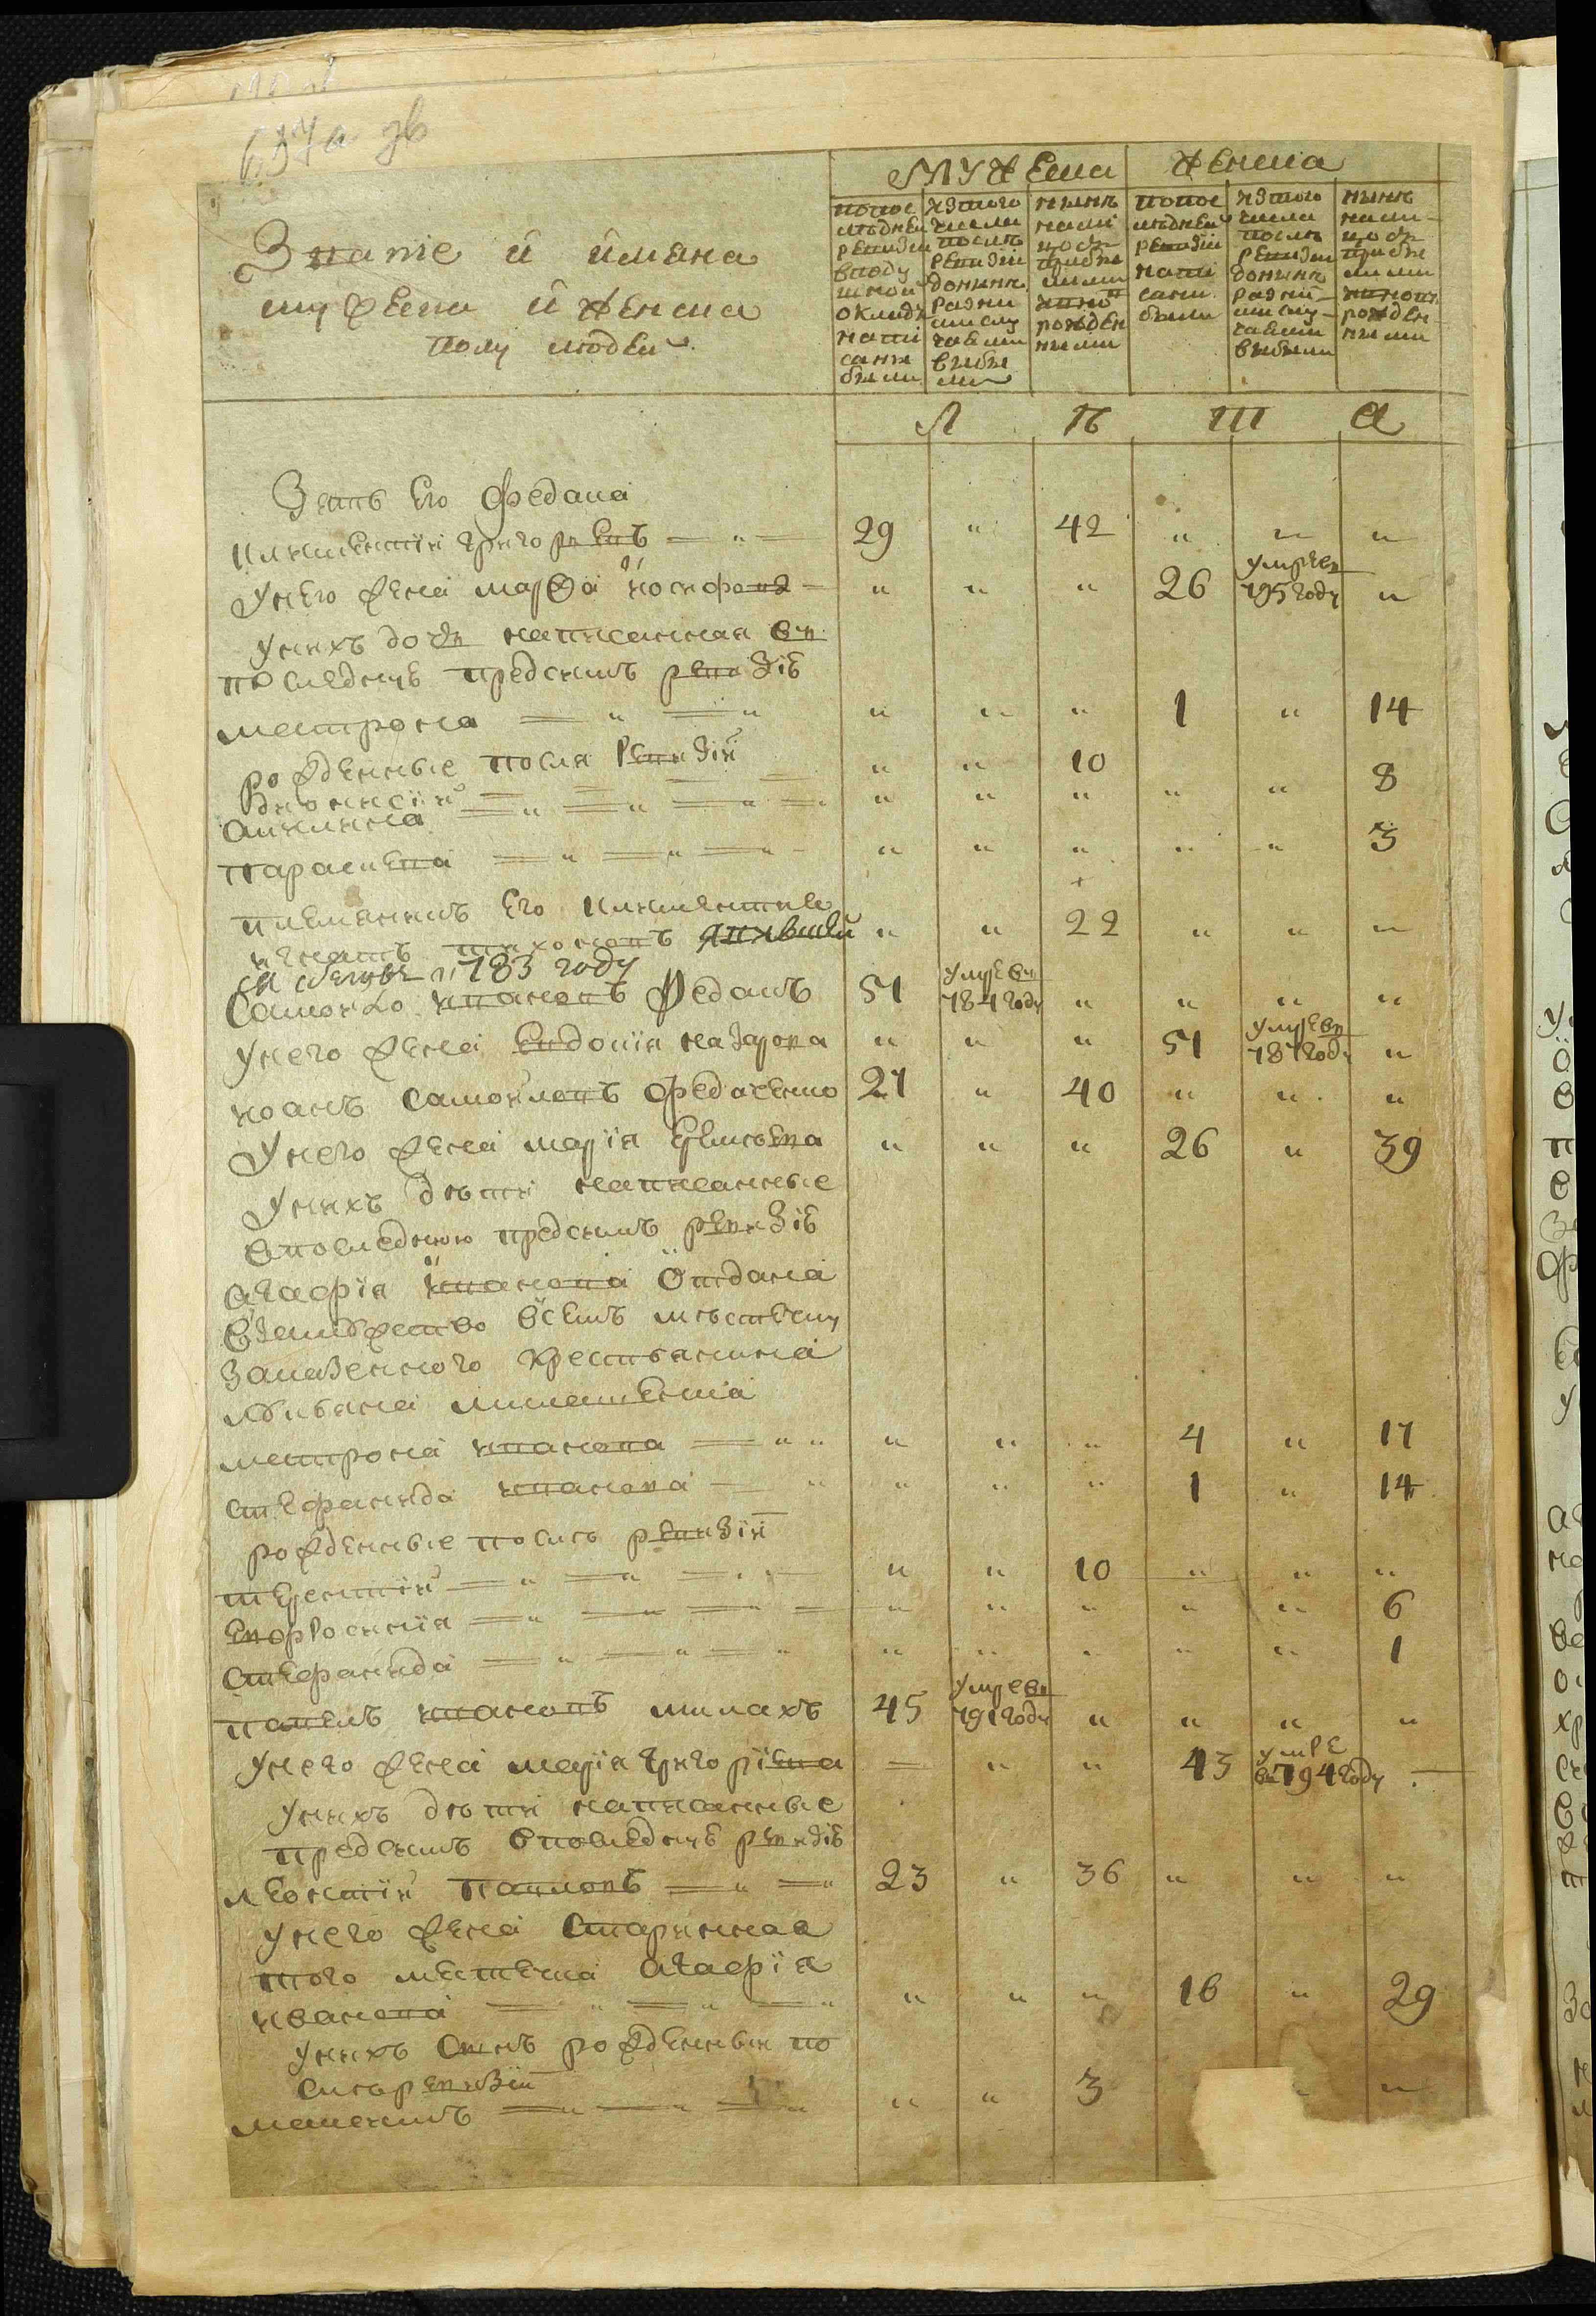 637а зв
Знание и имяна
мужеска и женска
полу людей
мужеска
женска
попос
лѣдней
ревизіи
в поду
шной
окладъ
напи
саны
были
изтого
числа
послѣ
ревизіи
доныне
разны
ми слу
чаями
выбы
ли
нынѣ
нали
цо съ
прибы
лыми
и вно
рожден
ными
попос
лѣдней
ревизіи
напи
саны
были
изтого
числа
послѣ
ревизіи
донынѣ
разны
ми слу
чаями
выбыли
нынѣ
нали
цо съ
прибы
лыми
и новъ
рожден
ными
л ѣ т а
Зять Его Федака
Климентій григоревъ 29 " 42 " " "
У него жена марфа иосифова " " " 26 умре въ 795 году "
У нихъ дочь написанная въ
последнеѣ предсимъ ревизіѣ
матрона " " " 1 " 14
рожденные посля Ревизій
Дионисій " " 10
акилина " " " " " 8
параскева " " " " " 3
племянникъ Его климентиев
игнатъ тихоновъ " " 22 " " "
783 году
Самойло ивановъ Федакъ 51 умре въ 784 году " " " "
У него жена Евдокія назарова " " " 51 умре въ 787 году "
иванъ самойловъ федаченко 27 " 40 " " "
У него жена марія " " " 26 " 39
У нихъ дѣти написанные
в последнюю предсимъ ревизіѣ
агафія иванова отдана
в замужество всемъ мѣстечку
за казенного крестьянина
матрона иванова " " " 4 " 17
стефанида иванова " " " 1 " 14
рожденные послѣ ревизій
терентій " " 10 " " "
Евфросинія " " " " " 6
стефанида " " " " " 1
павелъ ивановъ 45 умре въ 791 году " " " "
У него жена марія григоріева " " 43 умре въ 794 году
У нихъ дѣти написанные
предсимъ в последнеѣ ревизіѣ
леонтій павловъ 23 " 36 " " "
У него жена старинная
того местечка агафія
иванова " " " 16 " 29
У нихъ сынъ рожденный по
слѣ ревизіи
" " 3 " "